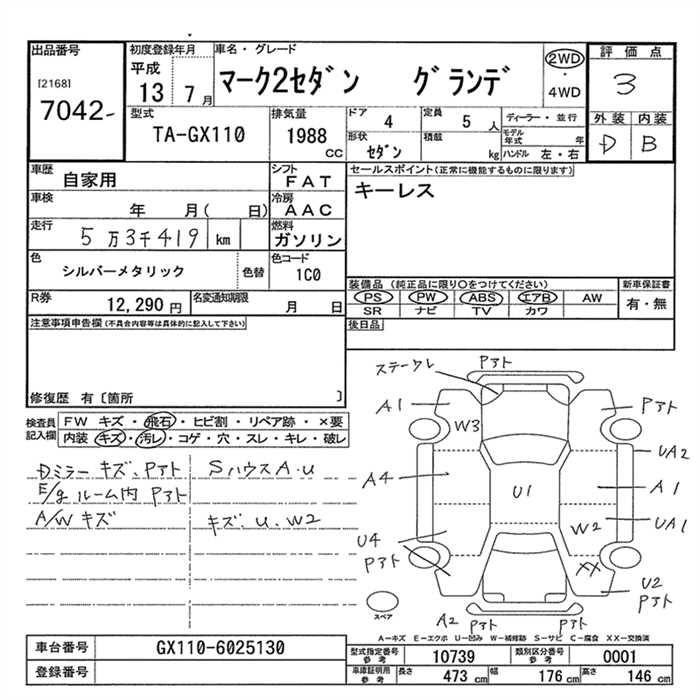 出品番号
[2168]
7042-
初度登録年月
平成
13 7月
車名・グレード
マーク2セダン グランデ
2WD
・
4WD
評価点
3
外装 内装
D B
型式
TA-GX110
排気量
1988
CC
ドア
4
定員
5 人
形状
セダン
積載
kg
ディーラー・並行
モデル年式 年
ハンドル 左・右
車歴
自家用
シフト
FAT
車検
年 月( 日)
冷房
AAC
走行
5万3千419 km
燃料
ガソリン
色
シルバーメタリック
色替
色コード
1C0
R券
12,290 円
名変通知期限
月 日
セールスポイント(正常に機能するものに限ります)
キーレス
装備品 (純正品に限り○をつけてください)
PS PW ABS エアB AW
SR ナビ TV カワ
新車保証書
有・無
後日品
注意事項申告欄(不具合内容等は具体的に記入して下さい)
修復歴 有〔箇所 〕
検査員
記入欄
FW キズ・飛石・ヒビ割・リペア跡・×要
内装 キズ・汚レ・コゲ・穴・スレ・キレ・破レ
Dミラー キズ、Pアト
E/gルーム内 Pアト
A/W キズ
SハウスA.U
キズ.U.W2
ステークレ
Pアト
A1
W3
Pアト
UA2
A4
U1
A1
W2
UA1
U4
Pアト
XX
U2
Pアト
スペア
A2
Pアト
Pアト
A-キズ E-エクボ U-凹み W-補修跡 S-サビ C-腐食 XX-交換済
車台番号
GX110-6025130
登録番号
型式指定番号
参考
10739
類別区分番号
参考
0001
車庫証明用
参考
長さ
473 cm
幅
176 cm
高さ
146 cm